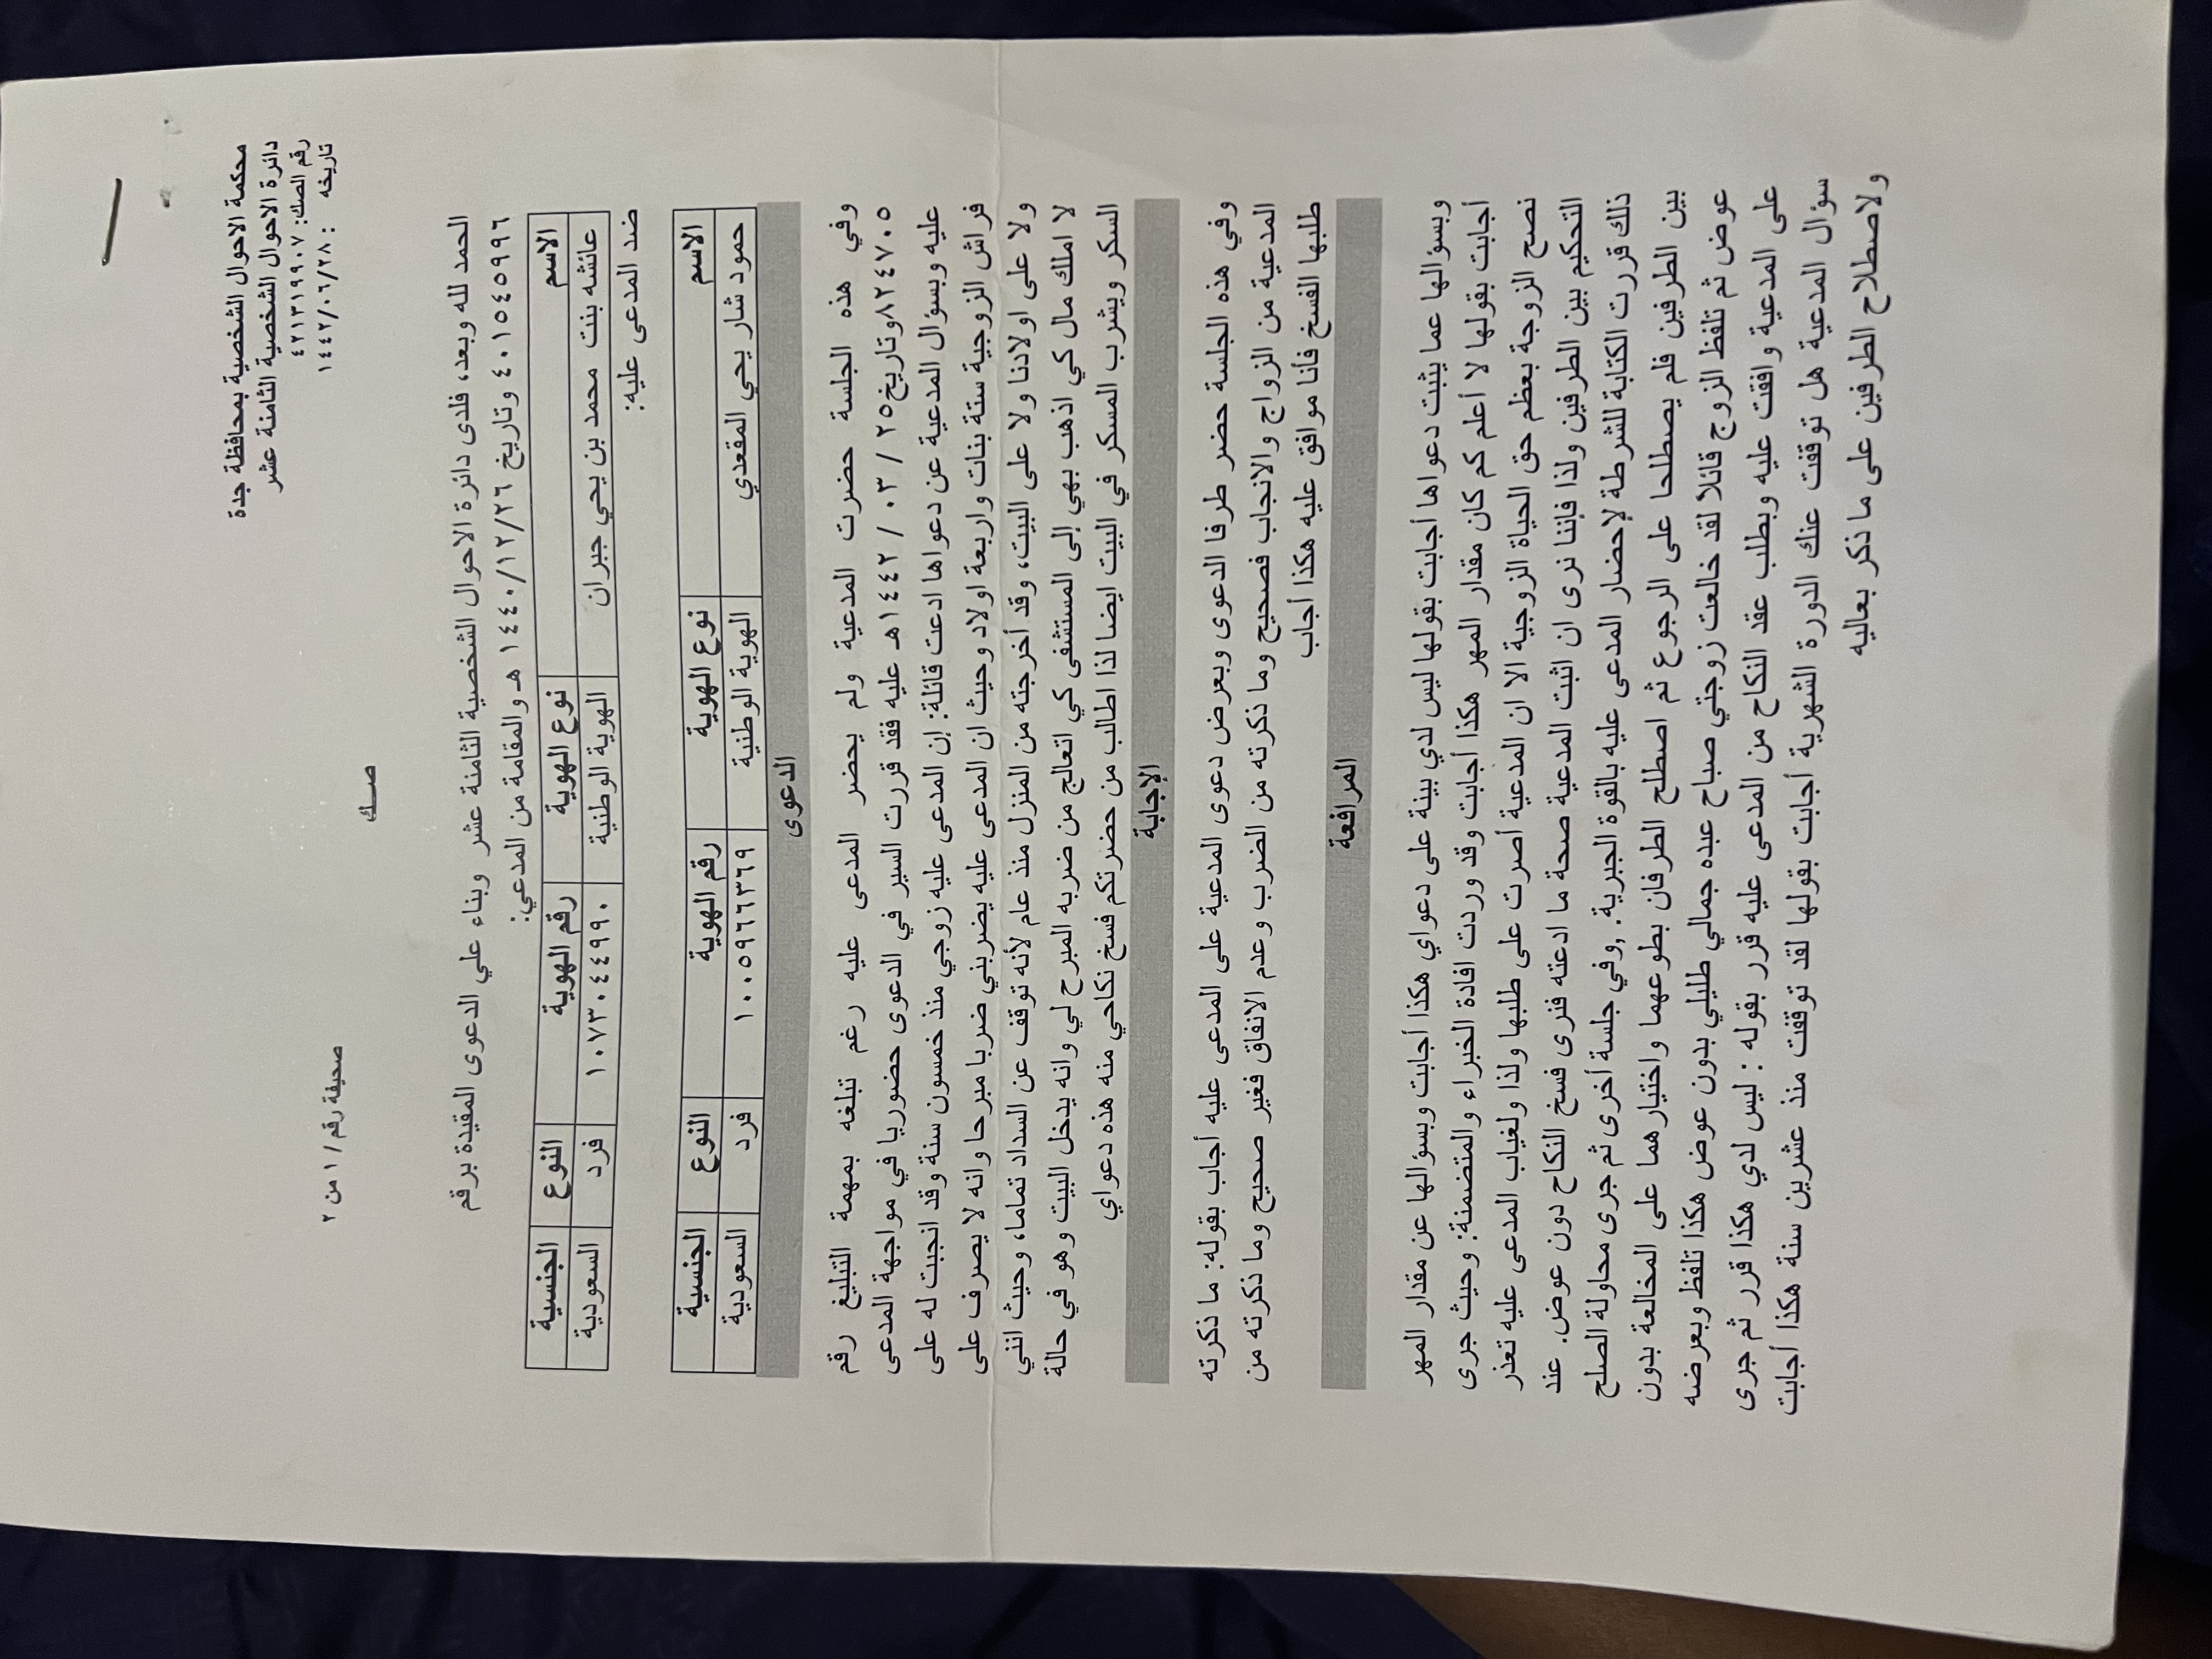 محكمة الاحوال الشخصية بمحافظة جدة
دائرة الاحوال الشخصية الثامنة عشر
رقم الصك: ٤٢١٣١٩٩٠٧
تاريخه : ١٤٤٢/٠٦/٢٨
صحيفة رقم ١/ من ٢
صك
الحمد لله وبعد، فلدى دائرة الاحوال الشخصية الثامنة عشر وبناء علي الدعوى المقيدة برقم
٤٠١٥٤٥٩٩٦ وتاريخ ١٤٤٠/١٢/٢٦ هـ والمقامة من المدعي:
الاسم نوع الهوية رقم الهوية النوع الجنسية
عائشه بنت محمد بن يحي جبران الهوية الوطنية ١٠٧٣٠٤٤٩٩٠ فرد السعودية
ضد المدعى عليه:
الاسم نوع الهوية رقم الهوية النوع الجنسية
حمود شار يحي المقعدي الهوية الوطنية ١٠٠٥٩٦٦٣٦٩ فرد السعودية
الدعوى
وفي هذه الجلسة حضرت المدعية ولم يحضر المدعى عليه رغم تبلغه بمهمة التبليغ رقم
٨٢٤٧٠٥وتاريخ٢٥ / ٠٣ / ١٤٤٢هـ عليه فقد قررت السير في الدعوى حضوريا في مواجهة المدعى
عليه وبسؤال المدعية عن دعواها ادعت قائلة: إن المدعى عليه زوجي منذ خمسون سنة وقد انجبت له على
فراش الزوجية ستة بنات واربعة اولاد وحيث ان المدعى عليه يضربني ضربا مبرحا وانه لا يصرف على
ولا على اولادنا ولا على البيت، وقد أخرجته من المنزل منذ عام لأنه توقف عن السداد تماما، وحيث انني
لا املك مال كي اذهب بهي إلى المستشفى كي اتعالج من ضربه المبرح لي وانه يدخل البيت وهو في حالة
السكر ويشرب المسكر في البيت ايضا لذا اطالب من حضرتكم فسخ نكاحي منه هذه دعواي
الإجابة
وفي هذه الجلسة حضر طرفا الدعوى وبعرض دعوى المدعية على المدعى عليه أجاب بقوله: ما ذكرته
المدعية من الزواج والانجاب فصحيح وما ذكرته من الضرب وعدم الانفاق فغير صحيح وما ذكرته من
طلبها الفسخ فأنا موافق عليه هكذا أجاب
المرافعة
وبسؤالها عما يثبت دعواها أجابت بقولها ليس لدي بينة على دعواي هكذا أجابت وبسؤالها عن مقدار المهر
أجابت بقولها لا أعلم كم كان مقدار المهر هكذا أجابت وقد وردت افادة الخبراء والمتضمنة: وحيث جرى
نصح الزوجة بعظم حق الحياة الزوجية الا ان المدعية أصرت على طلبها ولذا ولغياب المدعى عليه تعذر
التحكيم بين الطرفين ولذا فإننا نرى ان اثبت المدعية صحة ما ادعته فنرى فسخ النكاح دون عوض. عند
ذلك قررت الكتابة للشرطة لإحضار المدعى عليه بالقوة الجبرية. ,وفي جلسة أخرى ثم جرى محاولة الصلح
بين الطرفين فلم يصطلحا على الرجوع ثم اصطلح الطرفان بطوعهما واختيارهما على المخالعة بدون
عوض ثم تلفظ الزوج قائلاً لقد خالعت زوجتي صباح عبده جمالي طليلي بدون عوض هكذا تلفظ وبعرضه
على المدعية وافقت عليه وبطلب عقد النكاح من المدعى عليه قرر بقوله : ليس لدي هكذا قرر ثم جرى
سؤال المدعية هل توقفت عنك الدورة الشهرية أجابت بقولها لقد توقفت منذ عشرين سنة هكذا أجابت
ولاصطلاح الطرفين على ما ذكر بعاليه